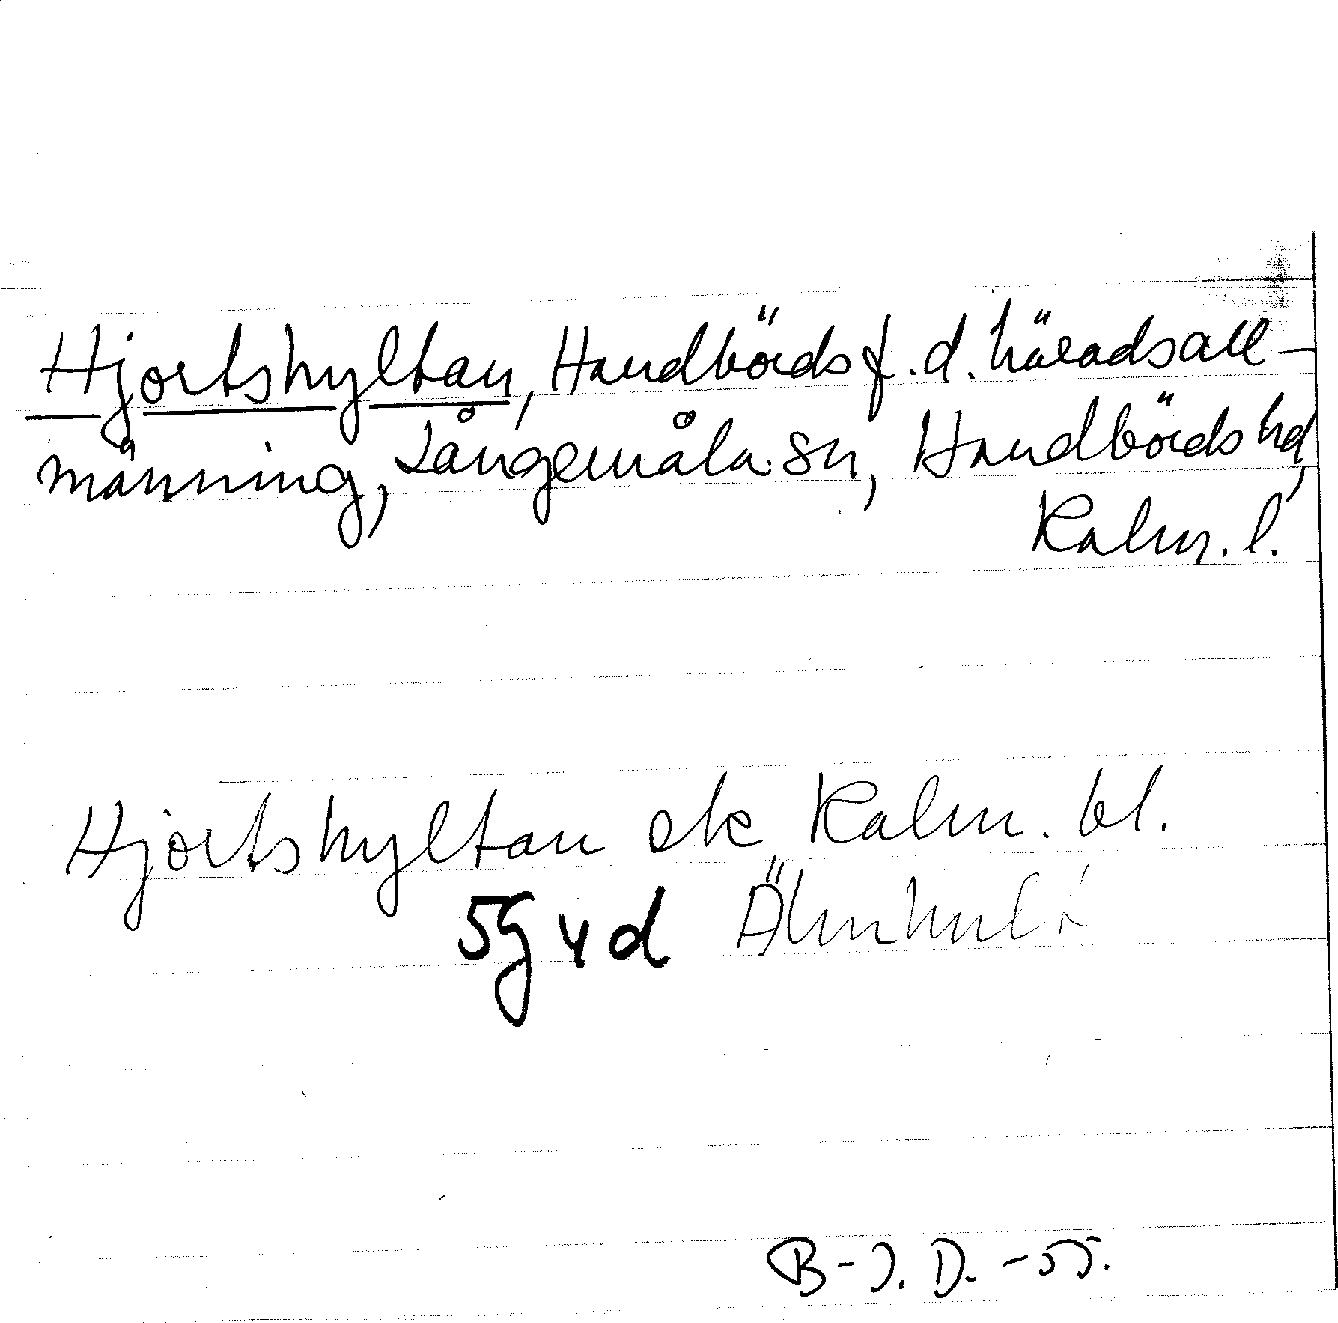 Hjortshyltan, Handbörds f.d. häradsall-
männing, Långemåla sn, Handbörds hd,
Kalm. l.
Hjortshyltan ek Kalm. bl.
5G 4d Älmhult
B-J. D. -55.